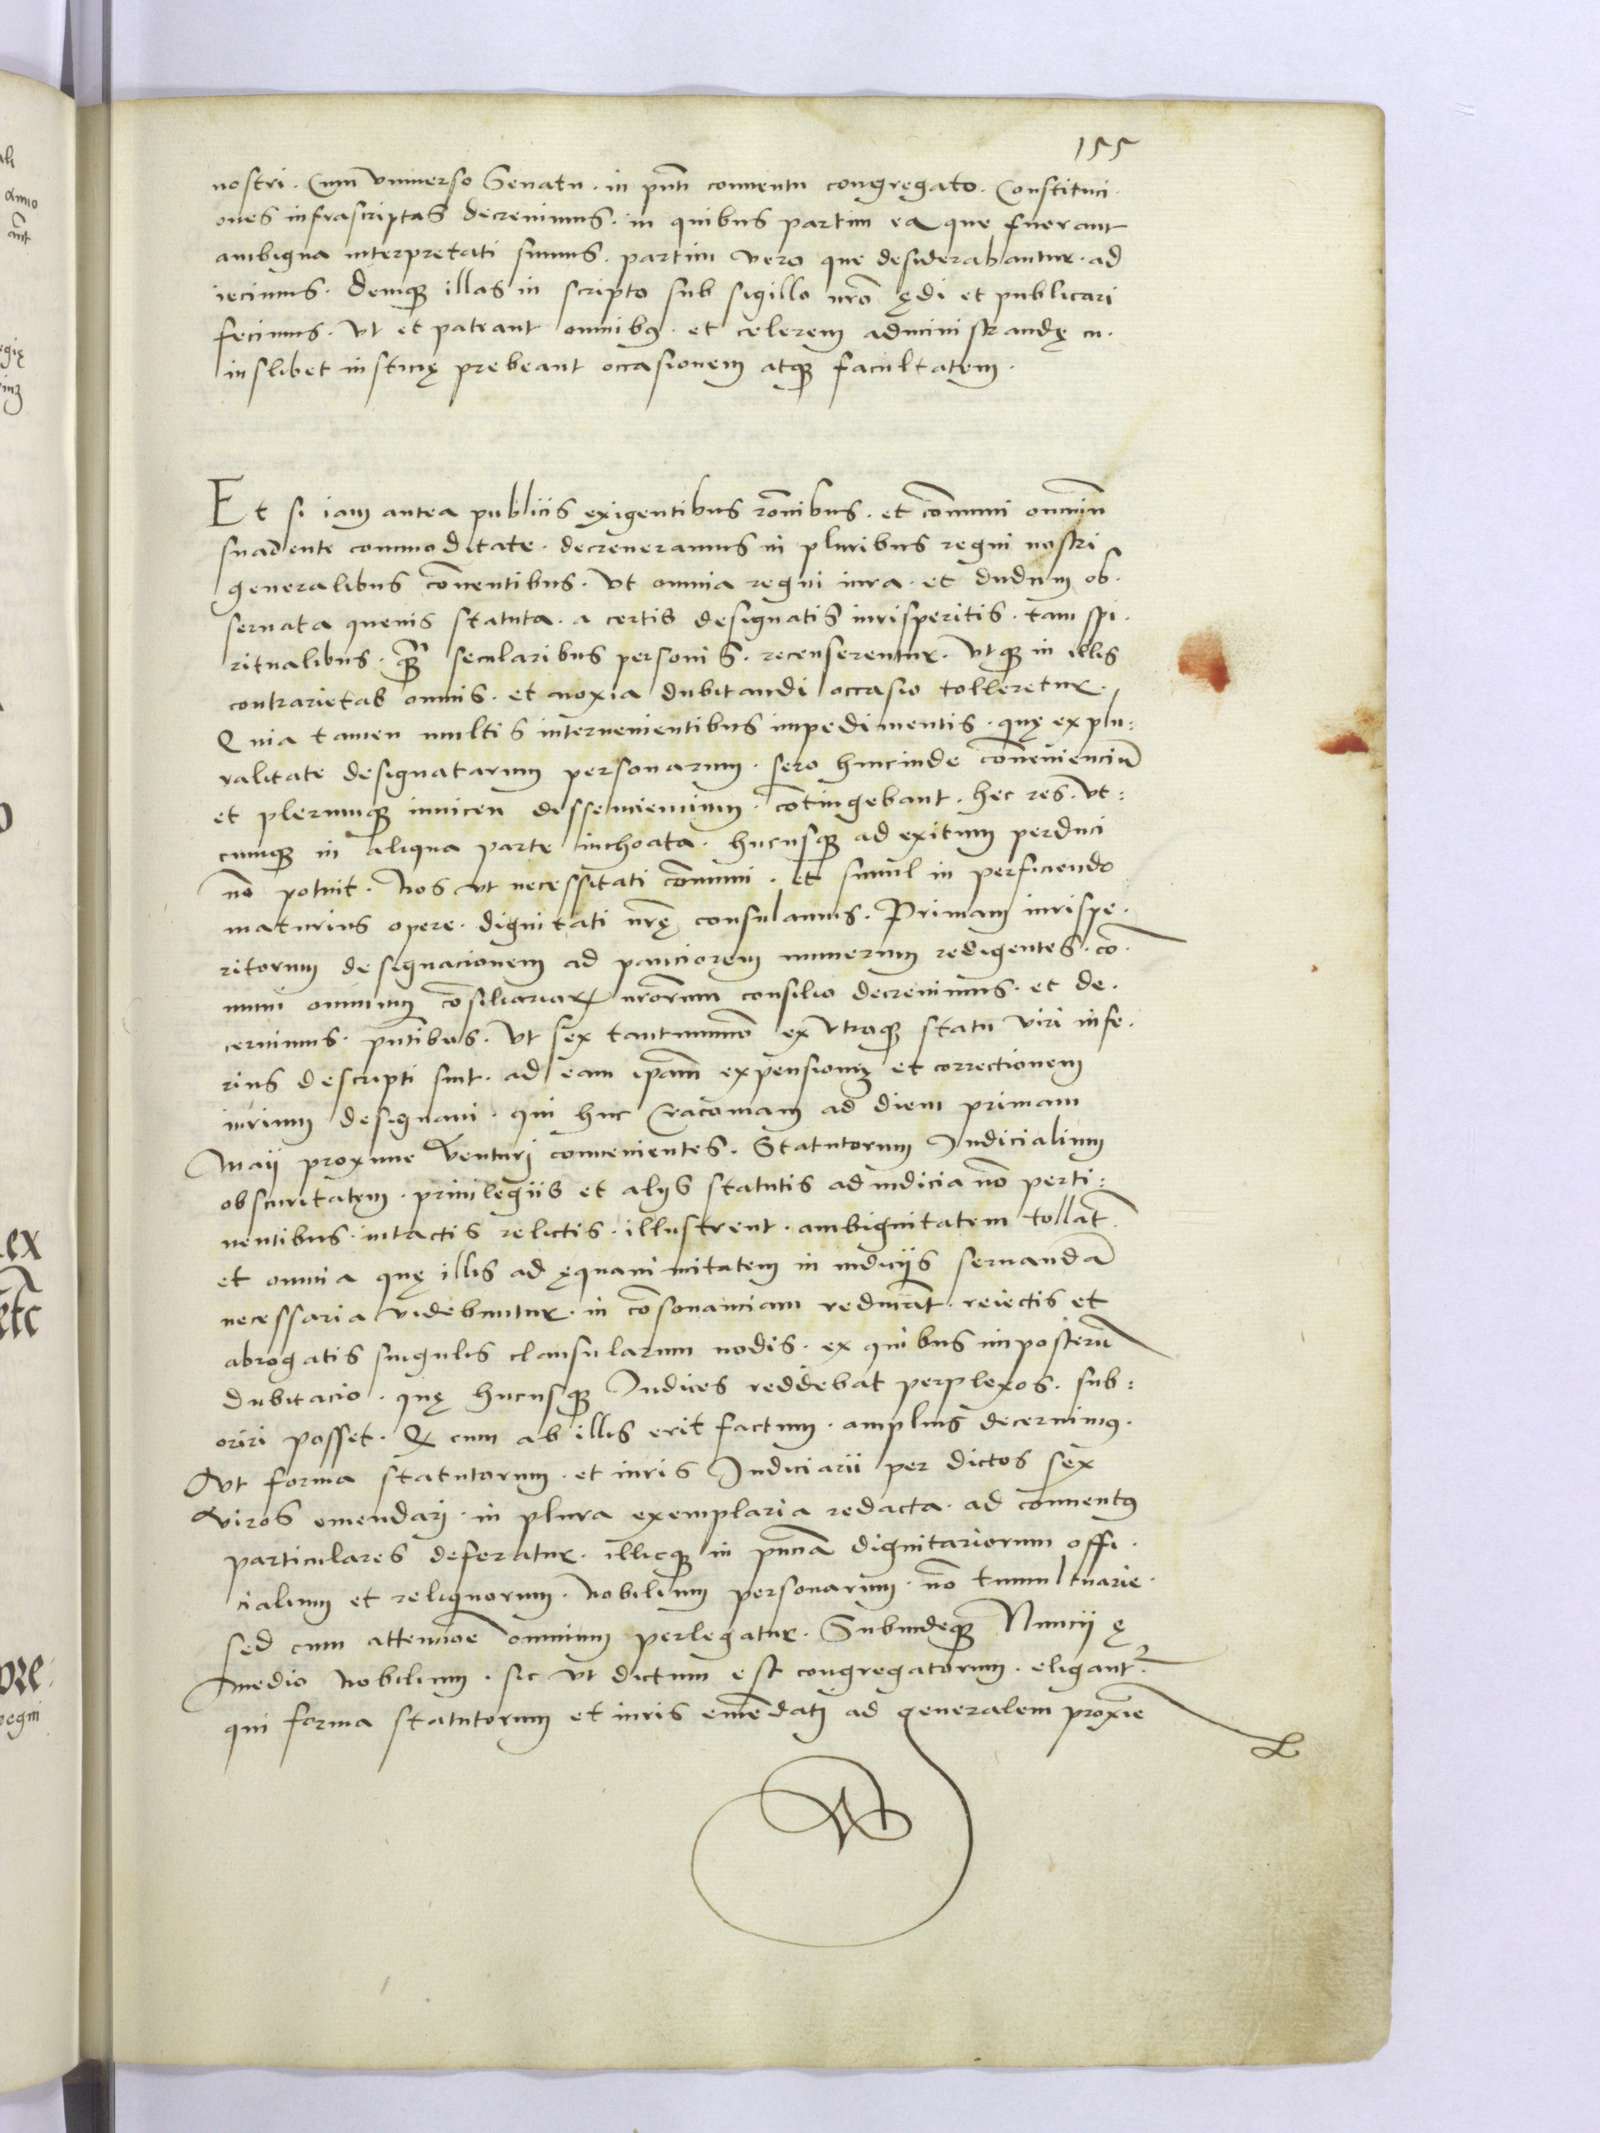 155
nostri. Cum vniuerso Senatu. in pñti conuentu congregato. Constituci.
ones infrascriptas decreuimus. in quibus partim ea que fuerant
ambigua interpretati sumus. partim vero que desiderabantur. ad
iecimus. Demꝗ illas in scripto sub sigillo nr̃o ędi et publicari
fecimus. Vt et pateant omnibꝰ. et celerem administrandę cu.
iuslibet iusticię prebeant occasionem atꝗ facultatem.
Et si iam antea publicis exigentibus rõnibus. et cõmuni omniũ
suadente commoditate. decreueramus in pluribus regni nostri
generalibus cõuentibus. Vt omnia regni iura. et dudum ob.
seruata queuis statuta. a certis designatis iurisperitis. tam spi.
ritualibus. ꝗ̃ secularibus personis. recenserentur. Vtꝗ in illis
contrarietas omnis. et noxia dubitandi occasio tolleretur.
Quia tamen multis interuenientibus impedimentis. quę ex plu:
ralitate designatarum personarum. sero hincinde cõuenienciũ
et plerumꝗ inuicem dissenciencium. cõtingebant. hec res. vt:
cumꝗ in aliqua parte inchoata. hucusꝗ ad exitum perduci
nõ potuit. Nos vt necessitati cõmuni. et simul in perficiendo
maturius opere. dignitati nr̃ę consulamus. Primam iurispe.
ritorum designacionem ad pauciorem numerum redigentes. cõ
muni omnium cõsiliarioꝝ nr̃orum consilio decreuimus. et de.
cernimus. pñtibus. Vt sex tantummõ ex vtroꝗ statu viri infe.
rius descripti sint. ad eam ipsam expensionem et correctionem
iurium designati. qui huc Cracouiam ad diem primam
Maij proxime venturi conuenientes. Statutorum Iudicialium
obscuritatem. priuilegiis et alijs statutis ad iudicia nõ perti:
nentibus. intactis relictis. illustrent. ambiguitatem tollãt.
et omnia quę illis ad ęquanimitatem in iudicijs seruandã
necessaria videbuntur. in cõsonanciam reducãt. reiectis et
abrogatis singulis clausularum nodis. ex quibus imposterũ
dubitacio. quę hucusꝗ Iudices reddebat perplexos. sub:
oriri posset. Et cum ab illis erit factum. amplius decernimꝰ.
Vt forma statutorum. et iuris Iudiciarii per dictos sex
viros emendari. in plura exemplaria redacta. ad conuentꝰ
particulares deferatur. illicꝗ in pñcia dignitariorum offi.
cialium et reliquorum. Nobilium personarum. nõ tumultuarie.
sed cum attencioe omnium perlegatur. Subindeꝗ Nuncii ę
medio Nobilium. sic vt dictum est congregatorum. eligantur
qui forma statutorum et iuris emẽdati ad generalem proxĩe